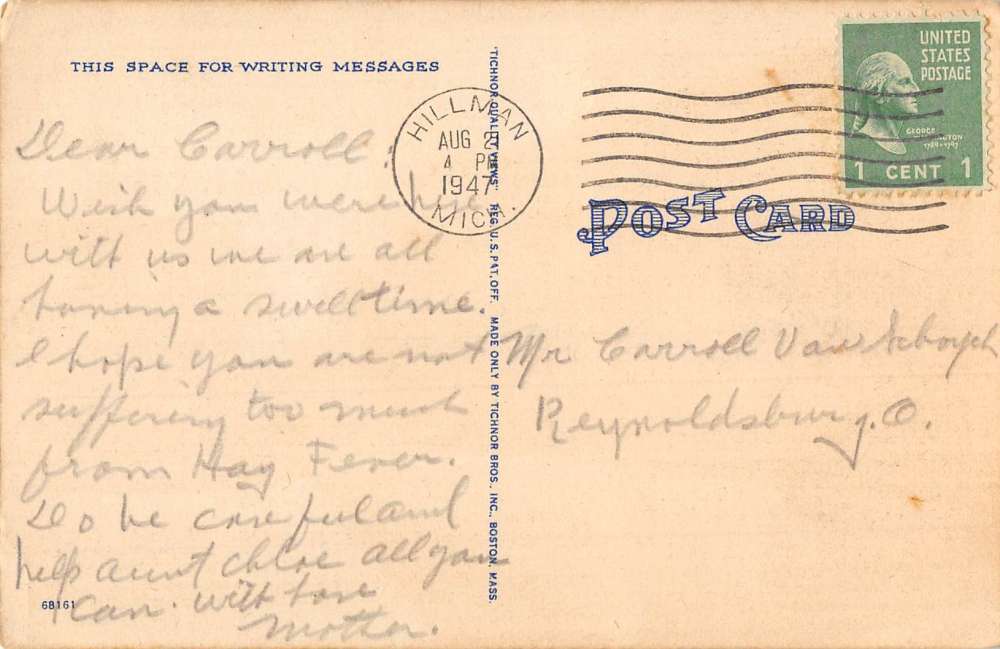 THIS SPACE FOR WRITING MESSAGES
Dear Carroll:
Wish you were here
with us we are all
having a swell time.
I hope you are not
suffering too much
from Hay Fever.
Do be careful and
help aunt Chloe all you
can. with love
Mother.
68161
"TICHNOR QUALITY VIEWS" REG. U.S. PAT. OFF. MADE ONLY BY TICHNOR BROS., INC., BOSTON, MASS.
HILLMAN
AUG 2
4 PM
1947
MICH.
UNITED
STATES
POSTAGE
GEORGE
WASHINGTON
1789-1797
1 CENT 1
POST CARD
Mr Carroll Van
Reynoldsburg. O.